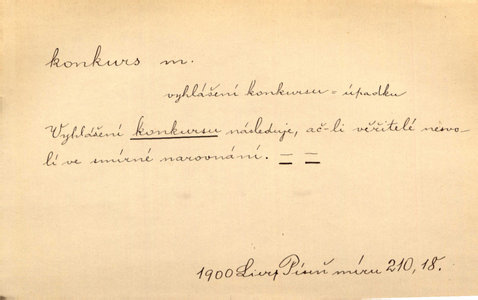 konkurs m.
vyhlášení konkursu = úpadku
Vyhlášení konkursu následuje, ač-li věřitelé nesvo-
lí ve smírné narovnání. = =
1900 Píseň míru 210, 18.